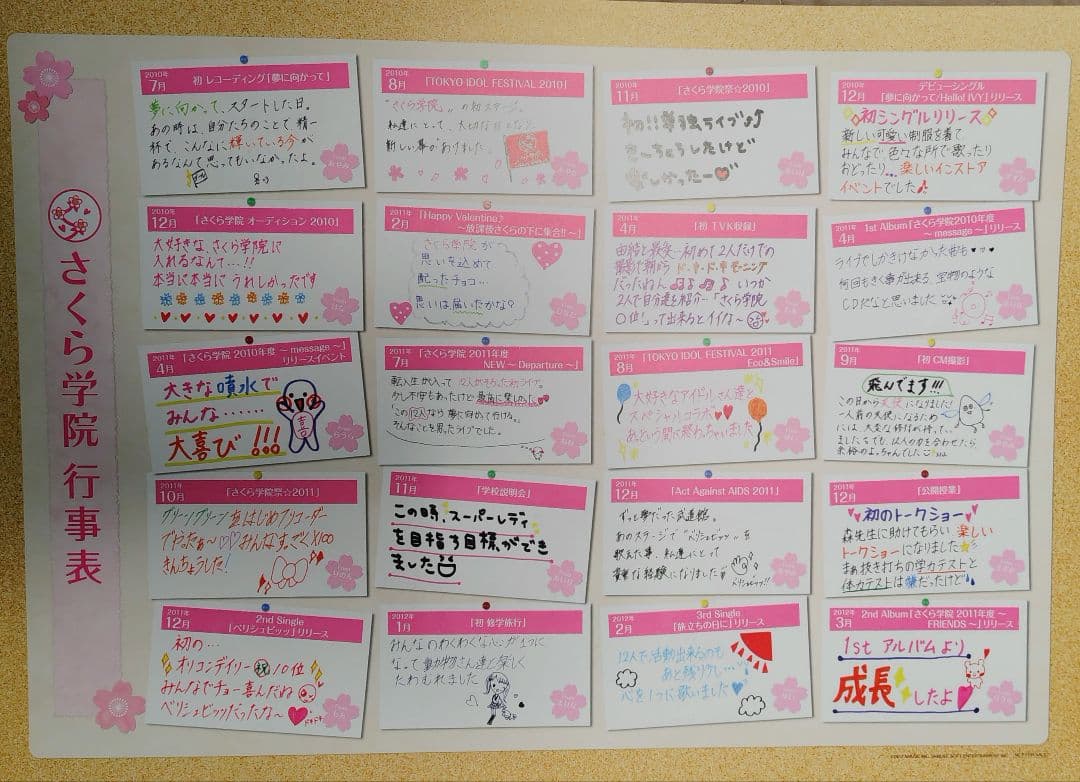 さくら学院 行事表
2010年
7月
初 レコーディング「夢に向かって」
夢に向かって、スタートした日。
あの時は、自分たちのことで精一
杯で、こんなに輝いている今が
あるなんて思ってもいなかったよ。
2010年
8月
「TOKYO IDOL FESTIVAL 2010」
"さくら学院"の初ステージ。
私達にとって、大切な
新しい事がありました。
2010年
11月
「さくら学院祭☆2010」
初!!単独ライブ♪♪
きーちょうしたけど
楽しかったー♡
2010年
12月
デビューシングル
「夢に向かって/Hello! IVY」リリース
初シングルリリース
新しい可愛い制服を着て
みんなで色々な所で歌ったり
おどったり...楽しいインストア
イベントでした♪
2010年
12月
「さくら学院 オーディション 2010」
大好きな、さくら学院に
入れるなんて...!!
本当に本当にうれしかったです
2011年
2月
「Happy Valentine♪
~放課後さくらの下に集合!!~」
さくら学院が
思いを込めて
配ったチョコ...
思いは届いたかな?
2011年
4月
「初 TVK収録」
由結と最愛 初めて2人だけでの
撮影で朝から ド・キ・ド・キ モーニング
だったねん ♪♪♪♪ いつか
2人で自分達を紹介…「さくら学院
〇位!」って出来るとイイな~
2011年
4月
1st Album「さくら学院2010年度
~ message ~」リリース
ライブでしかきけなかった曲も♥♥♥
何回もきく事が出来る 宝物のような
CDだなと思いました
2011年
4月
「さくら学院 2010年度 ~ message ~」
リリースイベント
大きな噴水で
みんな.......
大喜び!!!
喜
2011年
7月
「さくら学院 2011年度
NEW ~ Departure ~」
転入生が入って 12人がそろった初ライブ。
少し不安もあったけど最高に楽しめた♥♥
「この12人なら夢に向かって行ける。」
そんなことを思ったライブでした。
2011年
8月
「TOKYO IDOL FESTIVAL 2011
Eco&Smile」
大好きなアイドルさん達と
スペシャルコラボ♥♥
あっという間に終わっちゃいました
2011年
9月
「初 CM撮影」
飛んでます!!!
この日から天使になりました!
一人前の天使になるため
には 大変な修行が待って...
ました。でも、12人の力を合わせたら
2011年
10月
「さくら学院祭☆2011」
グリーングリーン 塩はじめアルトリコーダー
でやったぁ~♡♡みんなすっごく×100
きんちょうした!
2011年
11月
「学校説明会」
この時、スーパーレディ
を目指す目標ができ
ました
2011年
12月
「Act Against AIDS 2011」
ずっと夢だった武道館。
あのステージで "ベリシュビッツ"を
歌えた事、私達にとって
貴重な経験になりました
ベリシュビッツ!!
2011年
12月
「公開授業」
初のトークショー
森先生に助けてもらい 楽しい
トークショーになりました
まぁ抜き打ちの学力テストと
体力テストは嫌だったけど
2011年
12月
2nd Single
「ベリシュビッツ」リリース
初の...
オリコンデイリー祝10位
みんなでチョー喜んだね
ベリシュビッツだったな~
2012年
1月
「初 修学旅行」
みんなのわくわくな心が1つに
なって動物さん達と楽しく
たわむれました
2012年
2月
3rd Single
「旅立ちの日に」リリース
12人で、活動出来るのも
あと残り少し...
心を1つに歌いました
2012年
3月
2nd Album「さくら学院 2011年度 ~
FRIENDS ~」リリース
1st アルバムより
成長したよ